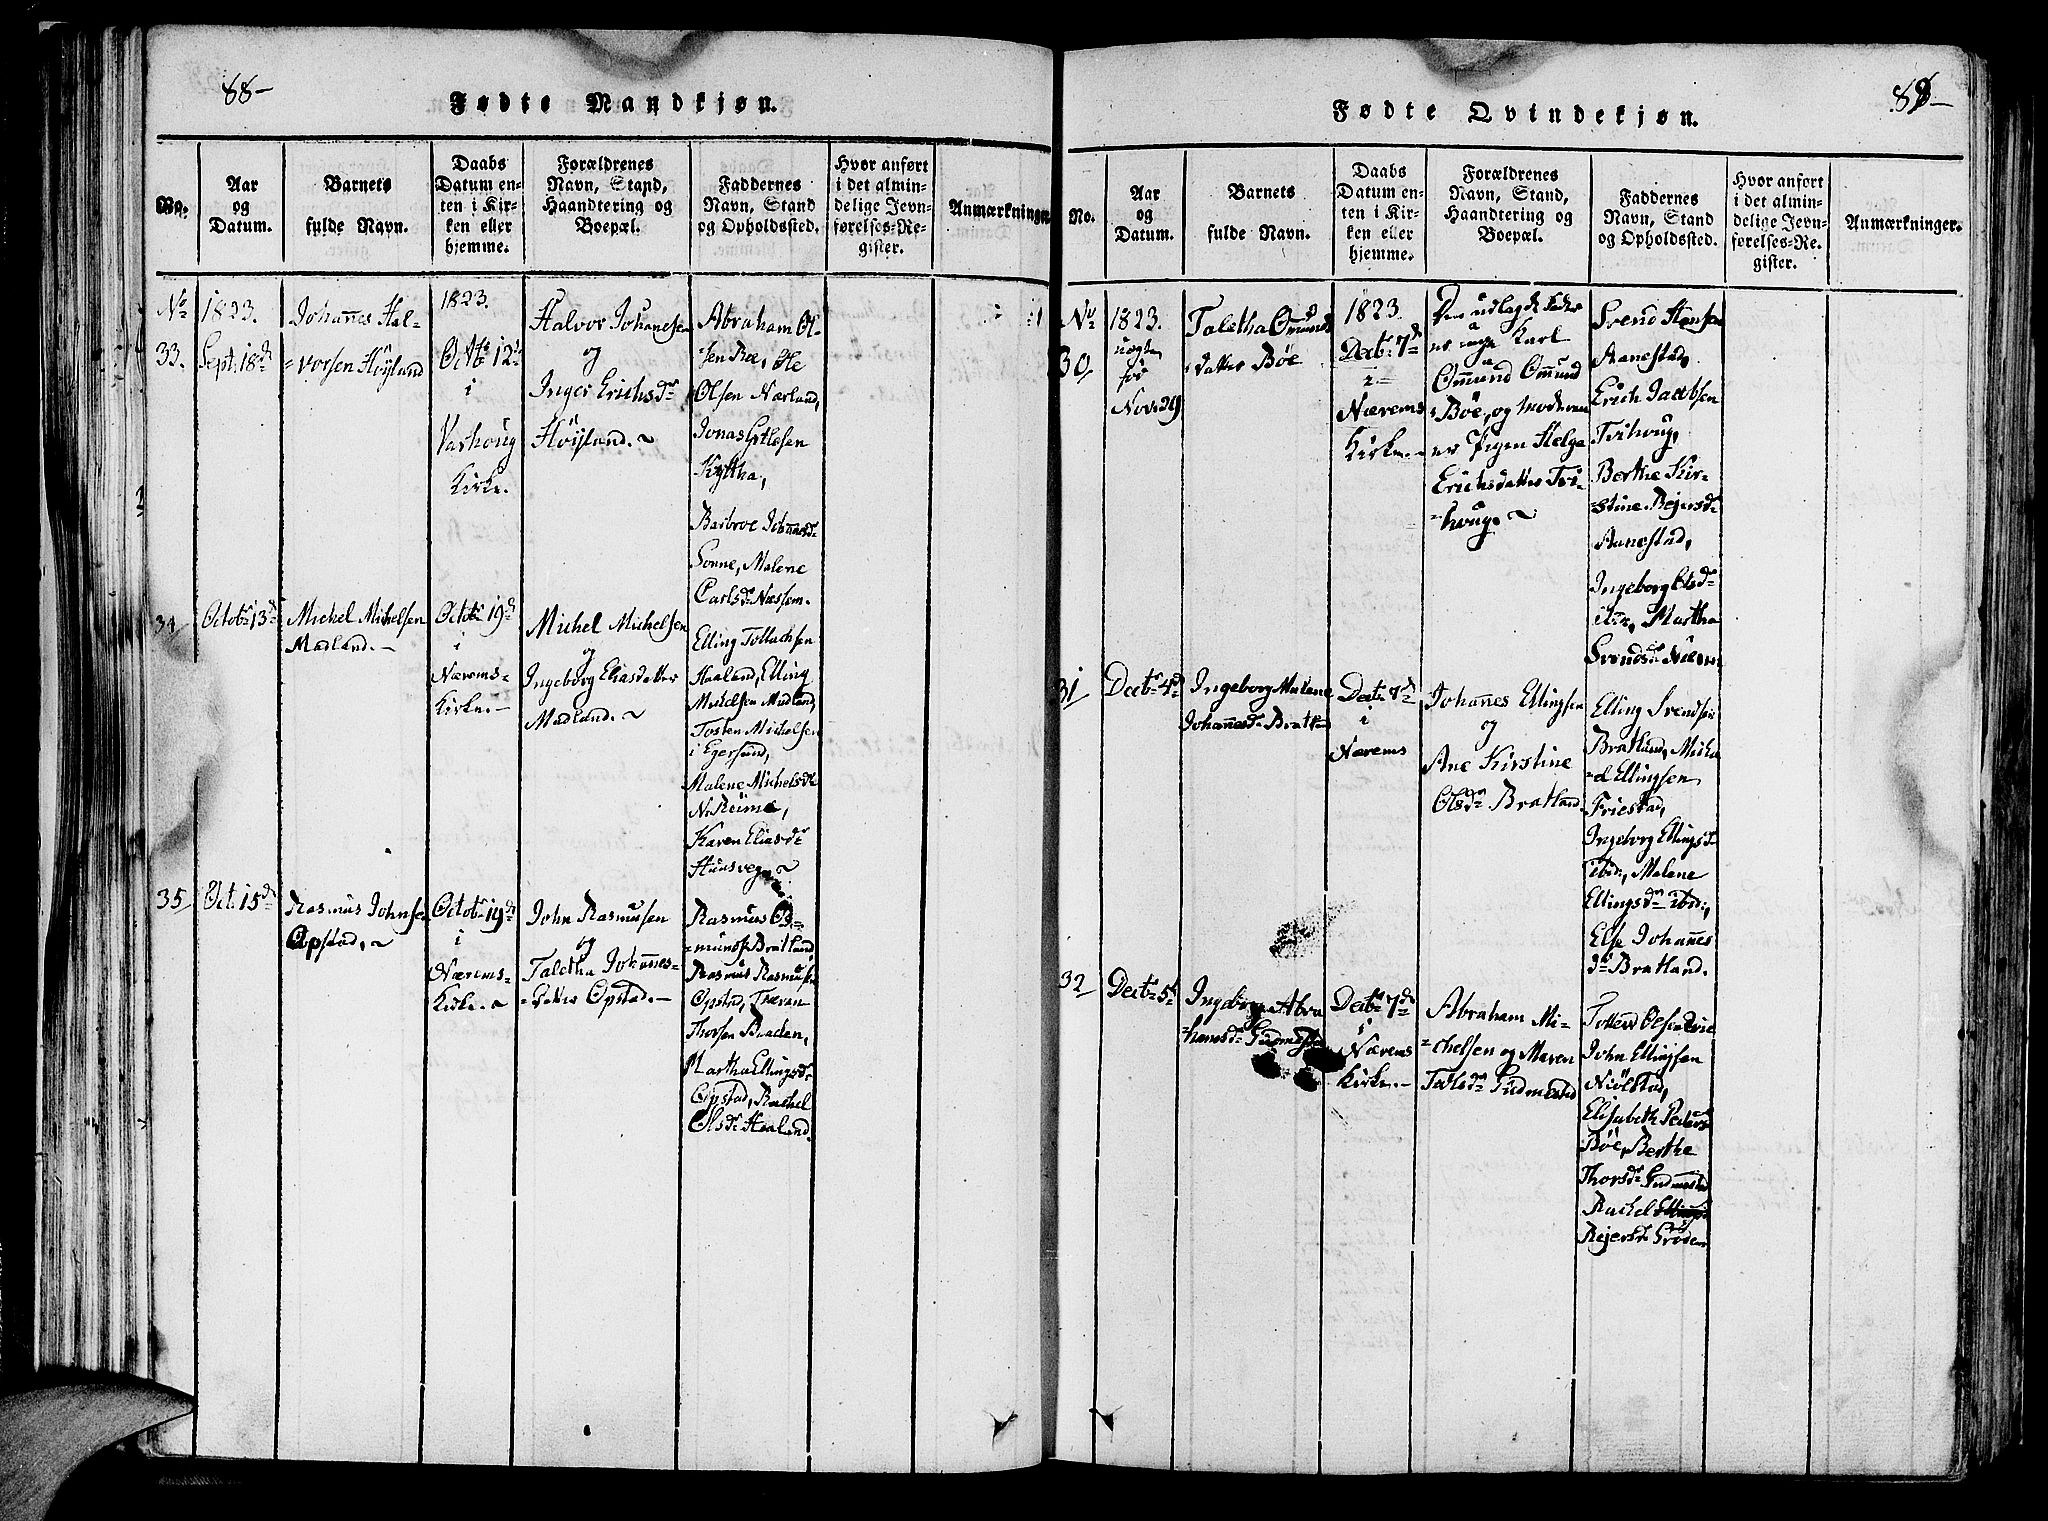 88-
Fødte Mandkjøn.
No.
Aar
og
Datum.
Barnets
fulde Navn.
Daabs
Datum en-
ten i Kir-
ken eller
hjemme.
Forældrenes
Navn, Stand,
Haandtering og
Boepæl.
Faddernes
Navn, Stand
og Opholdssted.
Hvor anført
i det almin-
delige Jevn-
førelses-Re-
gister.
Anmærkninger
No
33.
1823.
Sept: 18de
Johannes Hal-
=vorsen Höÿland
1823.
Octbr 12te
i
Varhoug
Kirke.
Halvor Johanesen
og
Inger Erichsdr
Höÿland.~
Abraham Ol-
sen Roe, Ole
Olsen Nærland,
Jonas
Kytha,
Barbroe
Malene
Carlsdr Næssem.
34
Octobr 13de
Michel Michelsen
Madland.-
Octobr 19de
i
Nærems-
Kirke.-
Michel Michelsen
og
Ingeborg Eliasdatter
Madland.~
Elling Tollachsen
Haaland, Elling
Michelsen Madland,
Tosten Michelsen
i Egersund,
Malene Michelsdr
N. Reime,
Karen Eliasdr
Huusvegn~
35
Oct: 15de
Rasmus Johnsen
Opstad,~
Octobr 19de
i
Nærems-
Kirke.~
John Rasmusen
og
Taletha Johannes-
=datter Opstad.-
Rasmus Os-
=munds Bratland,
Rasmus Rasmusen
Opstad,
Thorsen Braden,
Martha Ellingsdr
Opstad, Rachel
Olsdr Haaland.
89-
Fødte Qvindekjøn.
No.
Aar
og
Datum.
Barnets
fulde Navn.
Daabs
Datum en-
ten i Kir-
ken eller
hjemme.
Forældrenes
Navn, Stand,
Haandtering og
Boepæl.
Faddernes
Navn, Stand
og Opholdssted.
Hvor anført
i det almin-
delige Jevn-
førelses-Re-
gister.
Anmærkninger.
No
30
1823.
uægte
fød
Nov: 29
Taletha Omunds
datter Böe
1823.
Decbr 7de
i
Nærems
Kirke.-
Den udlagde Fader
er unge Karl
Omund Omund
Böe, og Moderen
er Pigen Helga
Erichsdatter Tvi-
=houg.~
Svend Hansen
Aanestad,
Erich Jacobsen
Tvihoug,
Berthe Kir-
=stine Rejersdr
Aanestad,
Ingeborg Olsdr
ibid:, Martha
Svendsdr
31
Decbr 4de
Ingeborg Malene
Johannesdr Bratland
Decbr 7de
i
Nærems
Johannes Ellingsen
og
Ane Kirstine
Olsdr Bratland.
Elling Svendsen
Bratland, Micha
=el Ellingsen
Friestad,
Ingeborg Ellingsdr
ibid:, Malene
Ellingsdr ibid:,
Else Johannes
dr Bratland.
32
Decbr 5te
Ingeborg Abra
=hamsdr Gudmestad
Decbr 7de
i
Nærems
Kirke.-
Abraham Mi-
=chelsen og Maren
Gudmestad
Olsen
John Ellingsen
Niölstad,
Elisabeth Peders
Böe, Berthe
Thorsdr Gudmestad
Rachel
Rejersdr Gröden